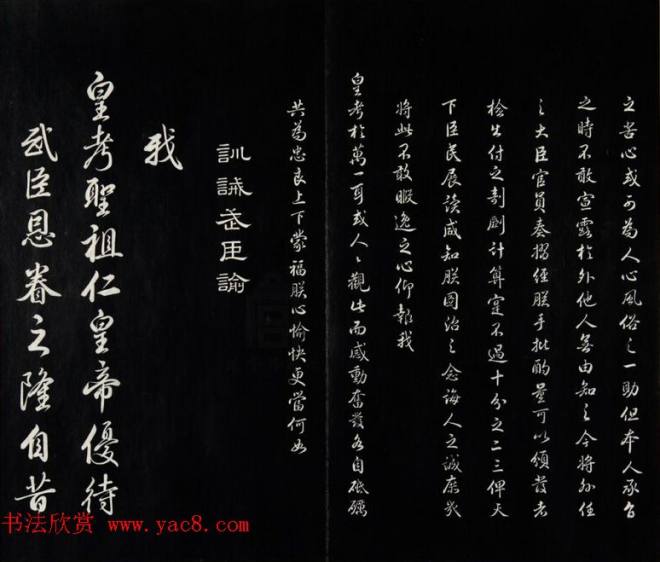 之苦心或可为人心風俗之一助但本人承旨
之時不敢宣露於外他人無由知之今将外任
之大臣官員奏摺經朕手批酌量可以頒發者
檢出付之剞劂計算寔不過十分之二三俾天
下臣民展讀咸知朕圖治之念誨人之誠庶幾
將此不敢暇逸之心仰報我
皇考於萬一耳或人人觀此而感動奮發各自砥礪
共為忠良上下蒙福朕心愉快更當何如
訓誡武臣諭
我
皇考聖祖仁皇帝優待
武臣恩眷之隆自昔
书法欣赏 www.yac8.com